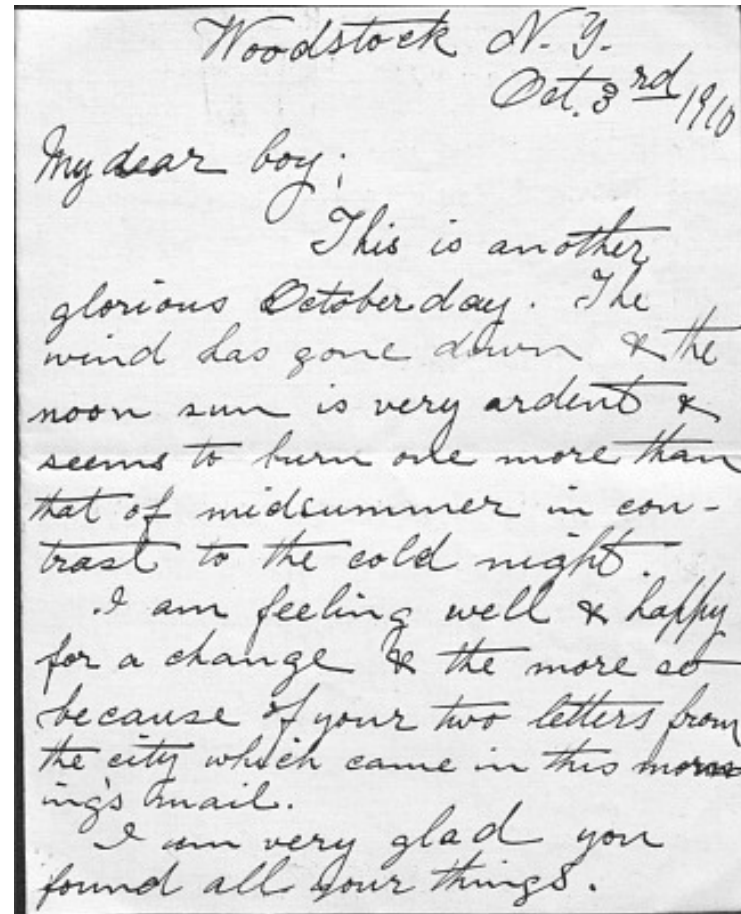 Woodstock N.Y.
Oct. 3rd 1910
My dear boy;
This is another
glorious October day. The
wind has gone down & the
noon sun is very ardent &
seems to burn one more than
that of midsummer in con-
trast to the cold night.
I am feeling well & happy
for a change & the more so
because of your two letters from
the city which came in this morn-
ing's mail.
I am very glad you
found all your things.